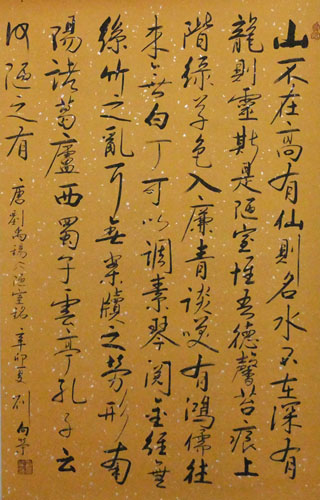 山不在高有仙則名水不在深有
龍則靈斯是陋室惟吾德馨苔痕上
階綠草色入廉青談笑有鴻儒往
来無白丁可以調素琴閱金經無
絲竹之亂耳無案牘之勞形南
陽諸葛廬西蜀子雲亭孔子云
何陋之有
唐劉禹锡之陋室銘 辛卯夏 刘向